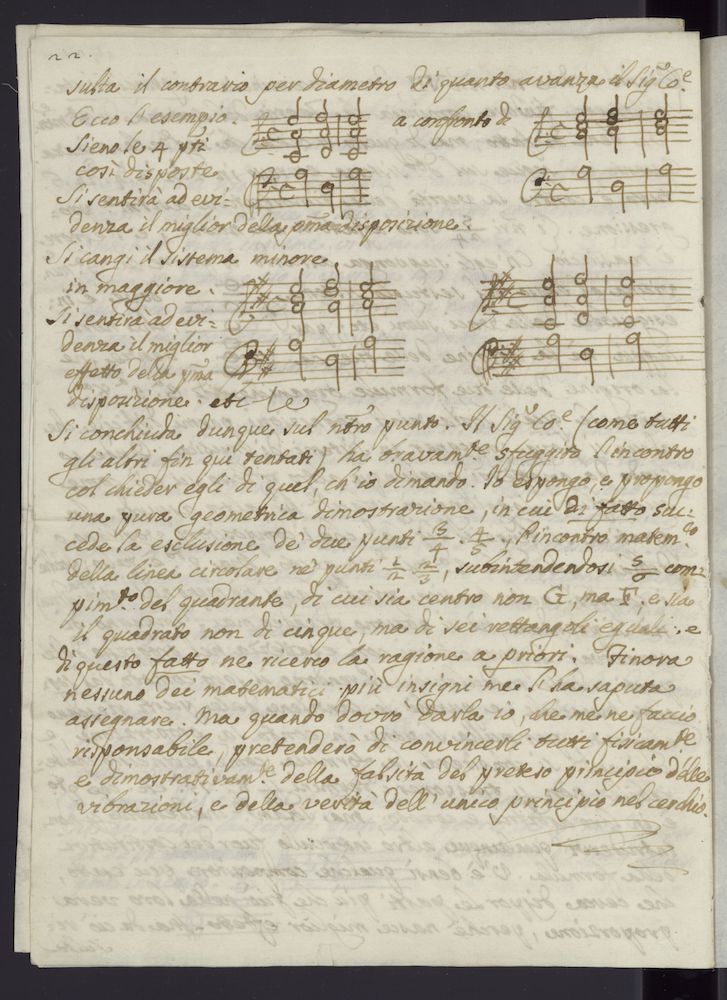 22.
sulta il contrario per diametro di quanto avanza il Sig.r Co.e
Ecco l'esempio.
a confronto di
Sieno le 4 p.ti
così disposte
Si sentirà ad evi-
denza il miglior della pma disposizione.
Si cangi il sistema minore
in maggiore.
Si sentirà ad evi-
denza il miglior
effetto della pma
disposizione. etc
Si conchiuda dunque sul ntro punto. Il Sig.r Co.e (come tutti
gli altri fin qui tentati) ha bravam.te sfuggito l'incontro
col chieder egli di quel, ch'io dimando. Io espongo, e propongo
una pura geometrica dimostrazione, in cui di fatto suc:
cede la esclusione de' due punti 3/4 4/5, l'incontro matem.co
della linea circolare ne' punti 1/2 2/3, subintendendosi 5/6 com-
pim.to del quadrante, di cui sia centro non G, ma F, e sia
il quadrato non di cinque, ma di sei rettangoli eguali. e
di questo fatto ne ricerco la ragione a priori. Finora
nessuno dei matematici più insigni me l'ha saputa
assegnare. Ma quando dovrò darla io, che me ne faccio
risponsabile, pretenderò di convincerli tutti fisicam.te
e dimostrativam.te della falsità del preteso principio delle
vibrazioni, e della verità dell'unico principio nel cerchio.